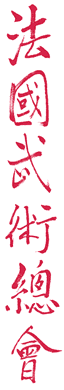 法國武術總會